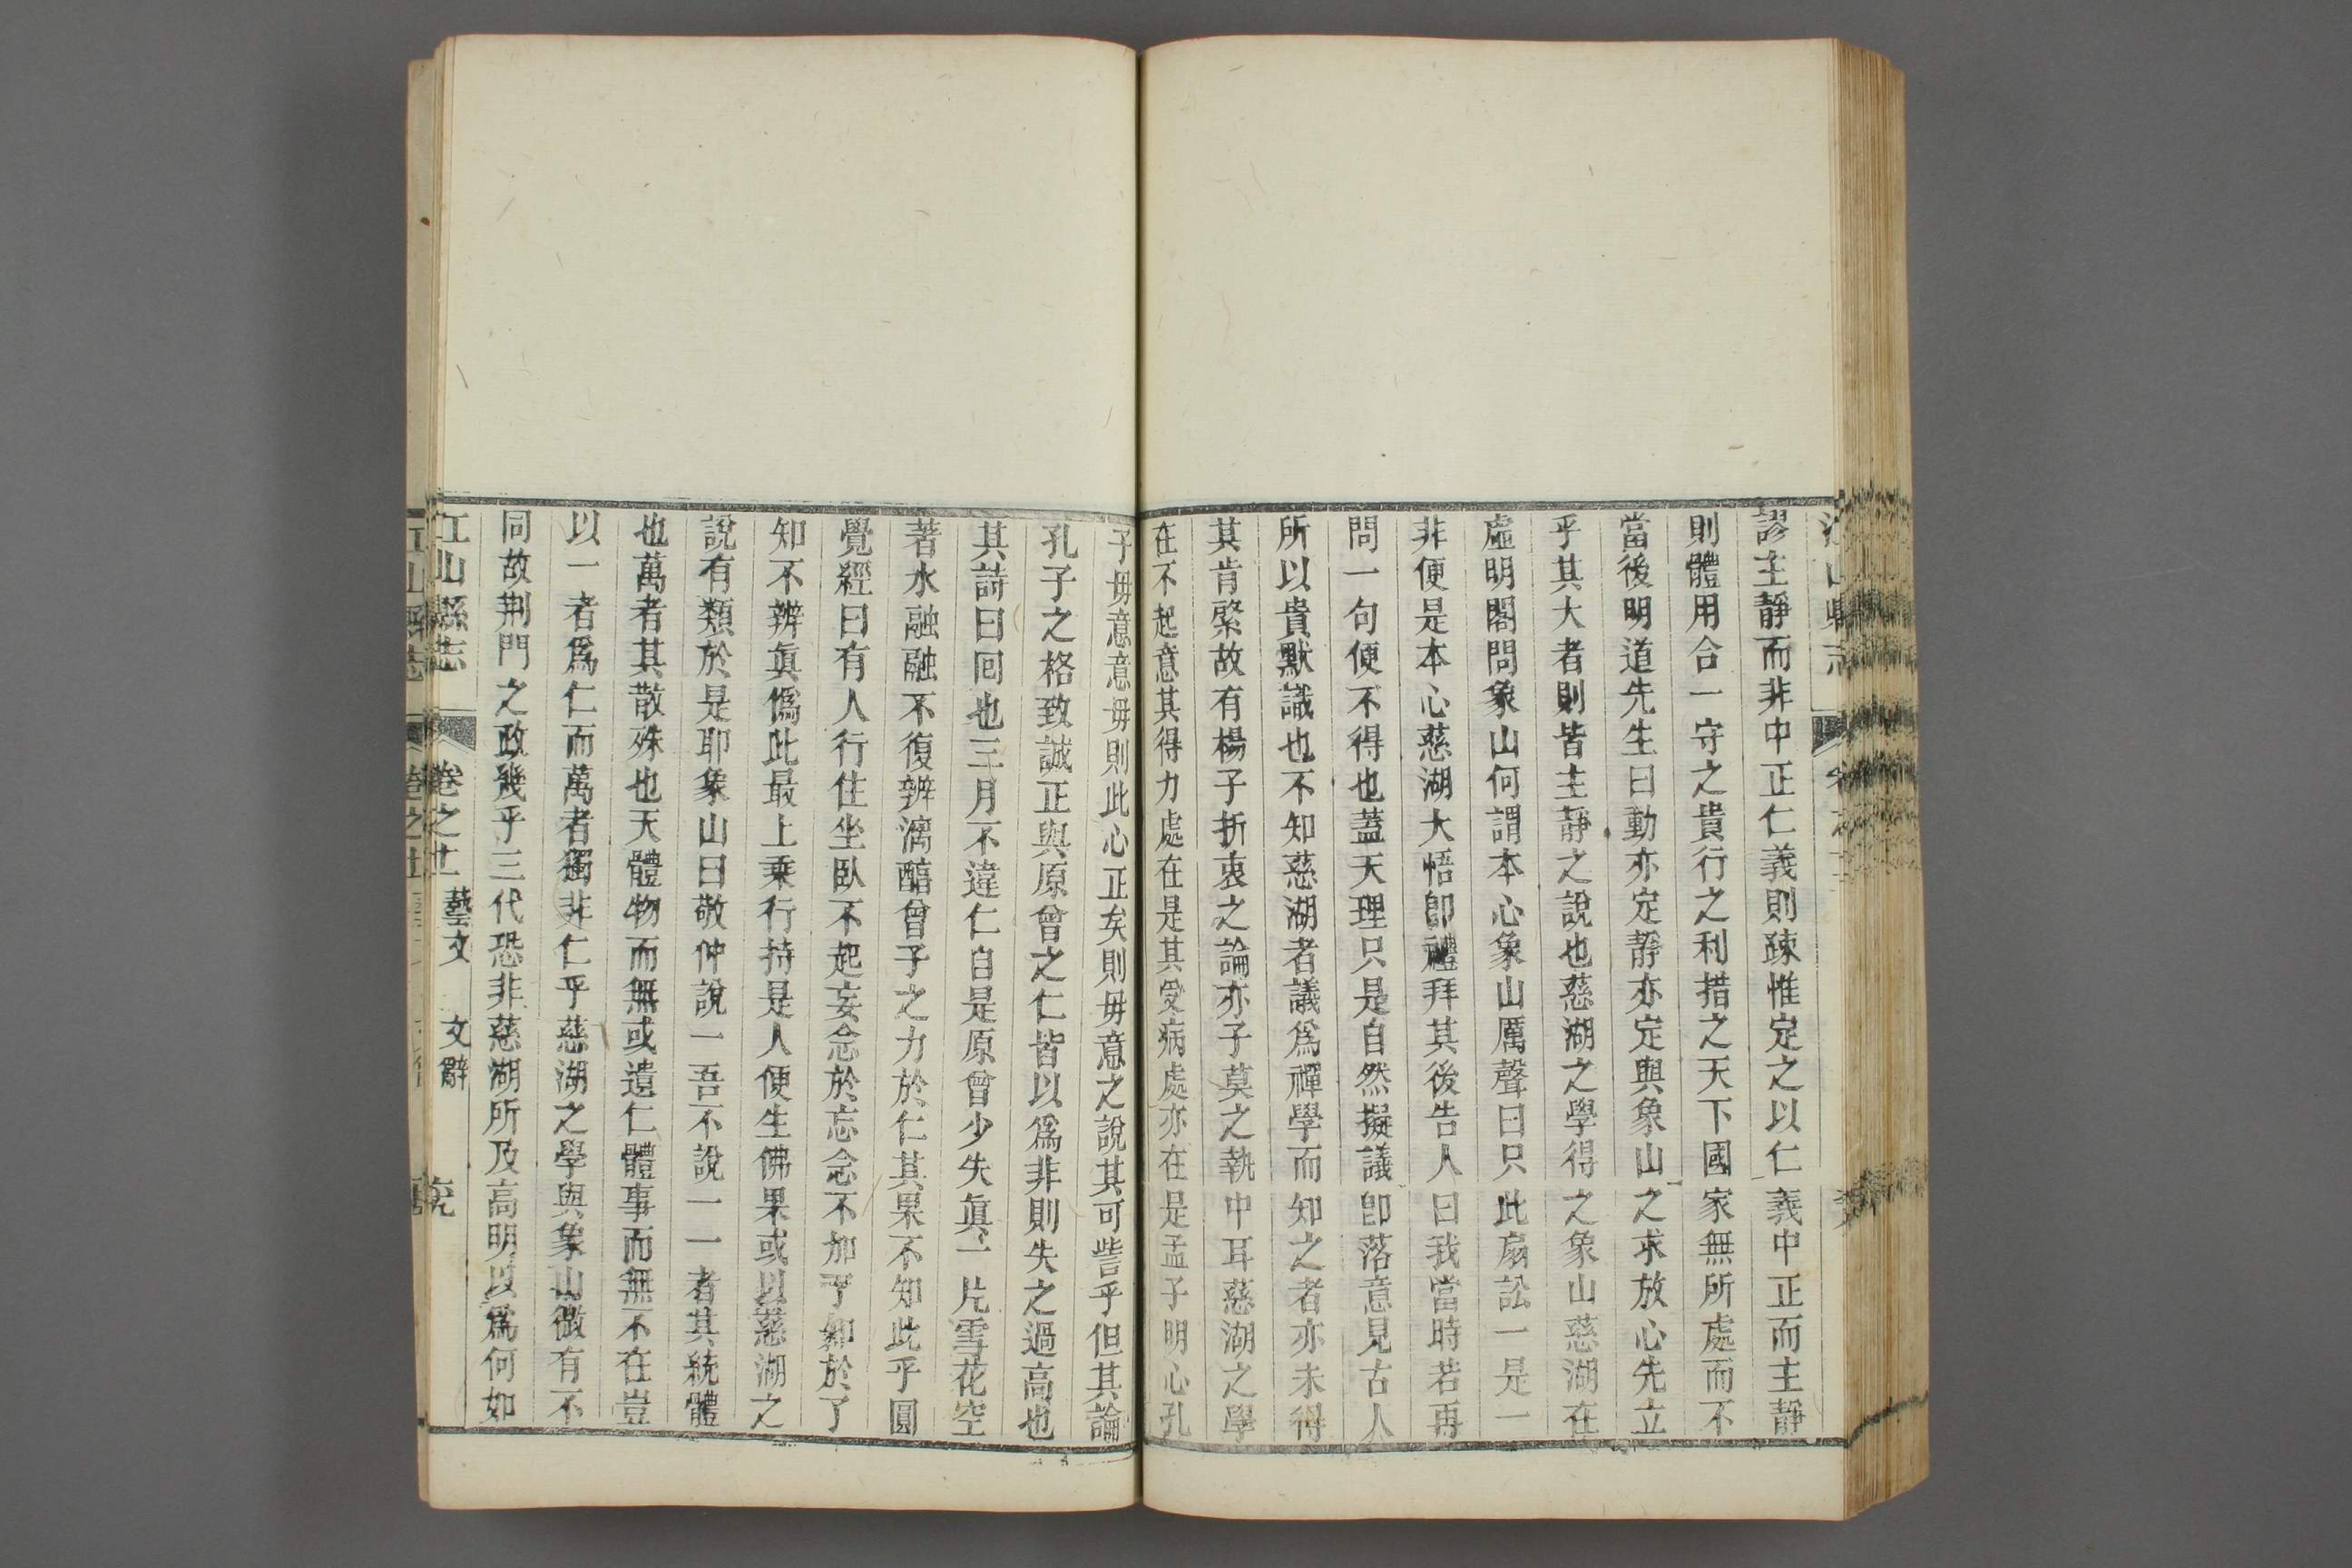 謬主靜而非中正仁義則疎惟定之以仁義中正而主靜
則體用合一守之貴行之利措之天下國家無所處而不
當後明道先生曰動亦定靜亦定與象山之求放心先立
乎其大者則皆主靜之說也慈湖之學得之象山慈湖在
虛明閣問象山何謂本心象山厲聲曰只此扇訟一是一
非便是本心慈湖大悟卽禮拜其後告人曰我當時若再
問一句便不得也蓋天理只是自然擬議卽落意見古人
所以貴默識也不知慈湖者議爲禪學而知之者亦未得
其肯綮故有楊子折衷之論亦子莫之執中耳慈湖之學
在不起意其得力處在是其受病處亦在是孟子明心孔
子毋意意毋則此心正矣則毋意之說其可訾乎但其論
孔子之格致誠正與原曾之仁皆以爲非則失之過高也
其詩曰回也三月不違仁自是原曾少失眞一片雪花空
著水融融不復辨漓醇曾子之力於仁其果不知此乎圓
覺經曰有人行住坐臥不起妄念於忘念不加了知於了
知不辨眞僞此最上乘行持是人便生佛果或以慈湖之
說有類於是耶象山曰敬仲說一吾不說一一者其統體
也萬者其散殊也天體物而無或遺仁體事而無不在豈
以一者爲仁而萬者獨非仁乎慈湖之學與象山微有不
同故荆門之政幾乎三代恐非慈湖所及高明以爲何如
江山縣志
卷之十一 藝文 文辭